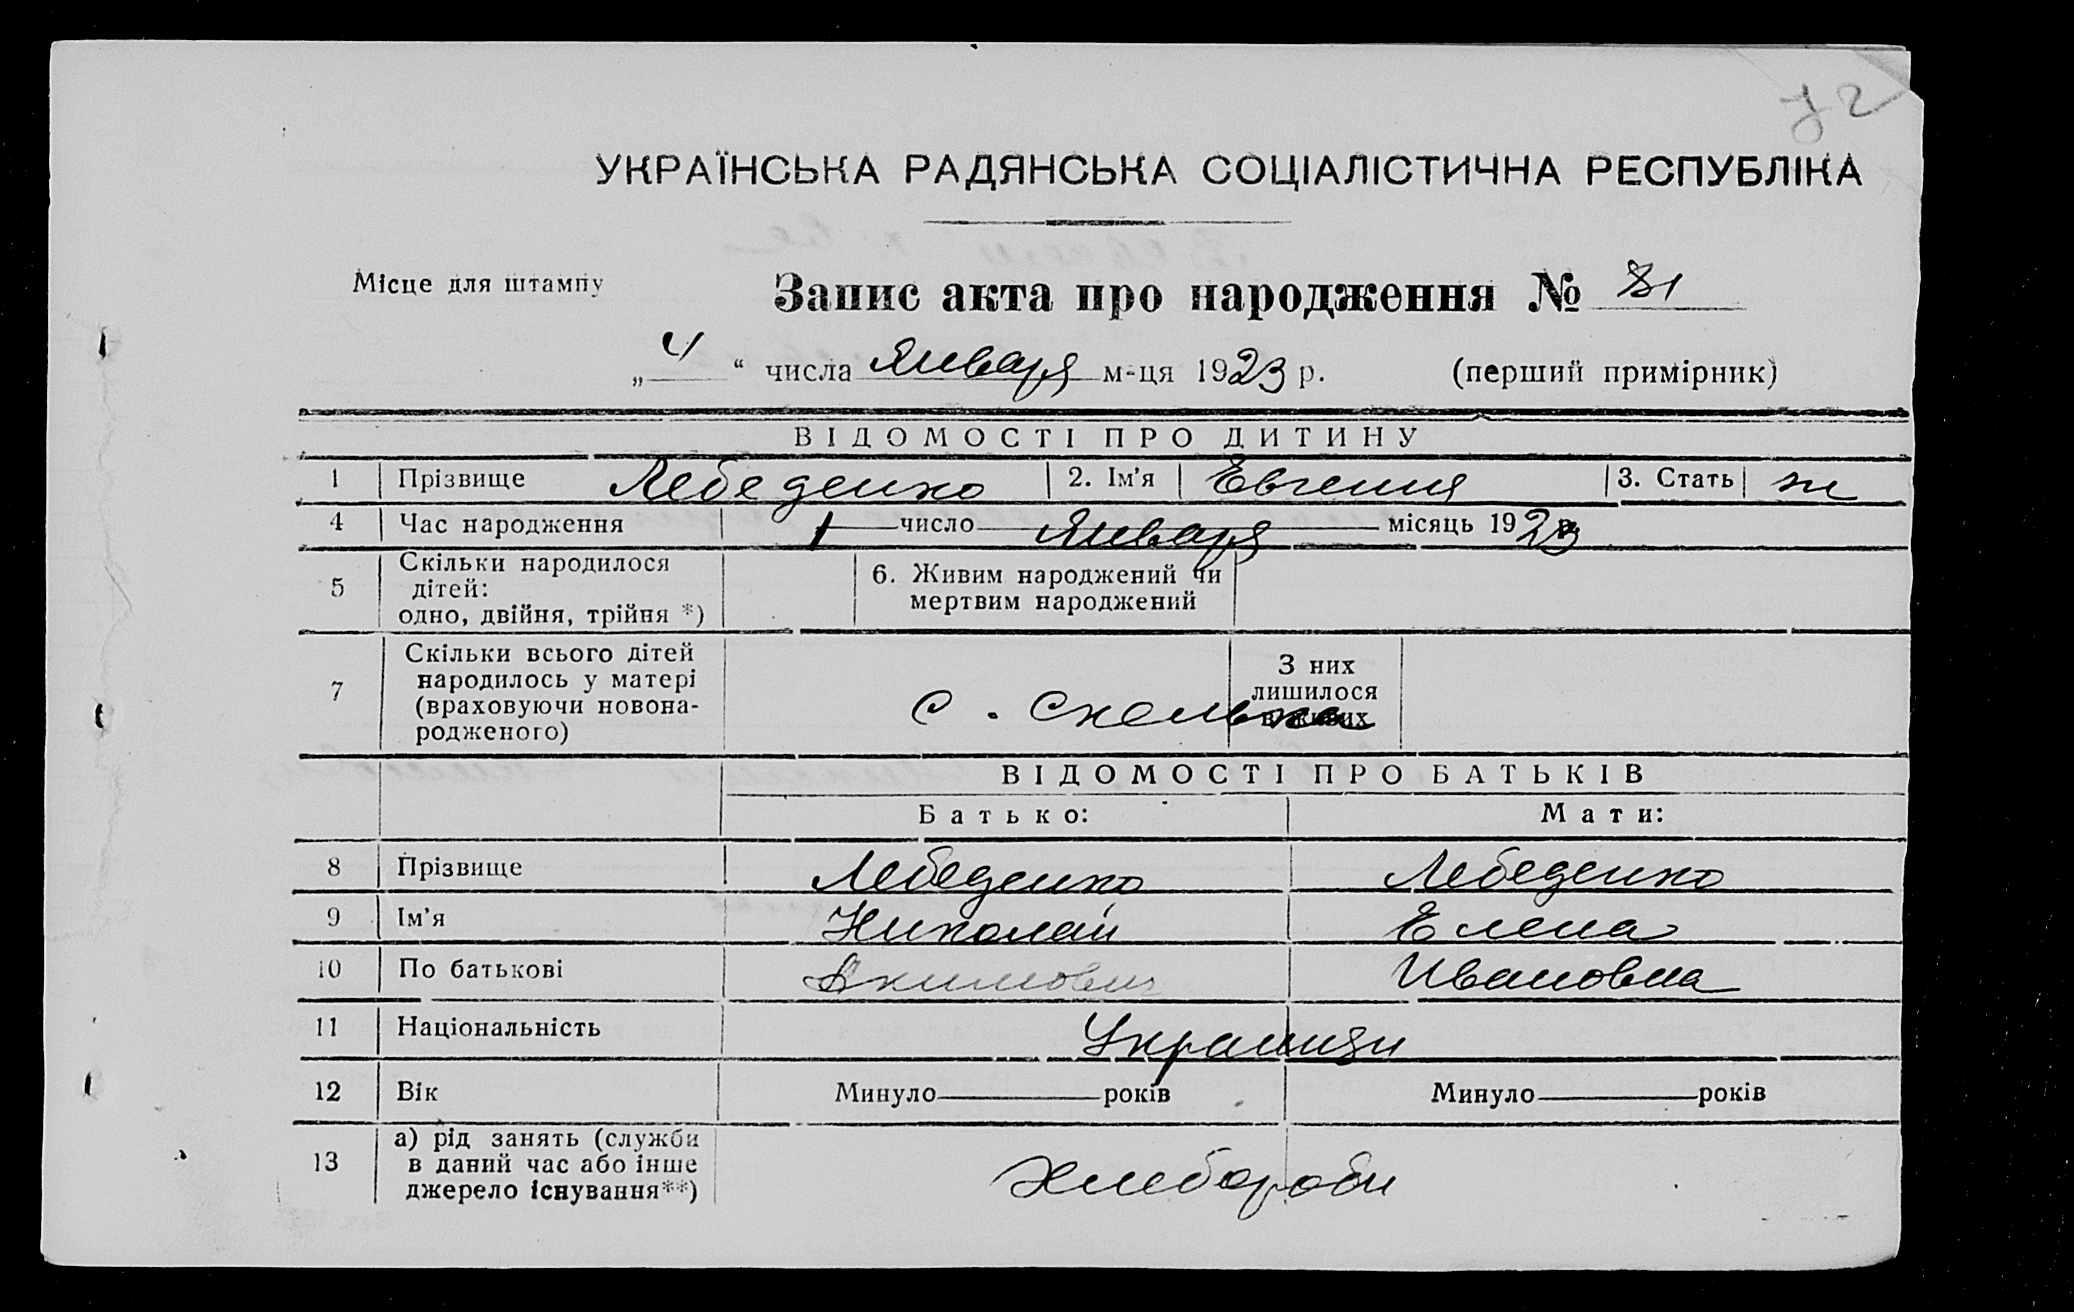 72
УКРАЇНСЬКА РАДЯНСЬКА СОЦІАЛІСТИЧНА РЕСПУБЛІКА
Місце для штампу
Запис акта про народження № 81
„ 4 “ числа Января м-ця 1923 р. (перший примірник)
ВІДОМОСТІ ПРО ДИТИНУ
1 Прізвище Лебеденко 2. Ім'я Евгения 3. Стать ж
4 Час народження 1 число Января місяць 1923
5 Скільки народилося дітей: одно, двійня, трійня *) 6. Живим народжений чи мертвим народжений
7 Скільки всього дітей народилось у матері (враховуючи новонародженого) с. Скелька З них лишилося в живих
ВІДОМОСТІ ПРО БАТЬКІВ
Батько: Мати:
8 Прізвище Лебеденко Лебеденко
9 Ім'я Николай Елена
10 По батькові Акимович Ивановна
11 Національність Украинцы
12 Вік Минуло років Минуло років
13 а) рід занять (служби в даний час або інше джерело існування**) Хлебороби